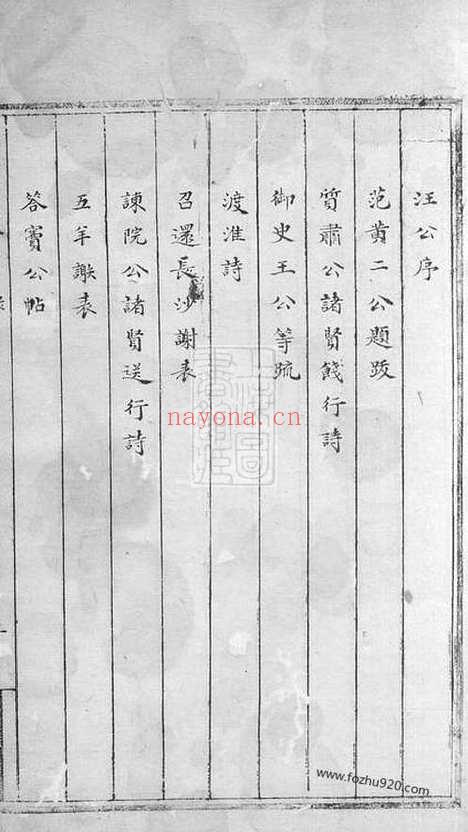 汪公序
范黄二公題跋
質肅公諸賢餞行詩
御史王公等疏
渡淮詩
召還長沙謝表
諫院公諸賢送行詩
五年謝表
答竇公帖
nayona.cn
www.fozhu920.com